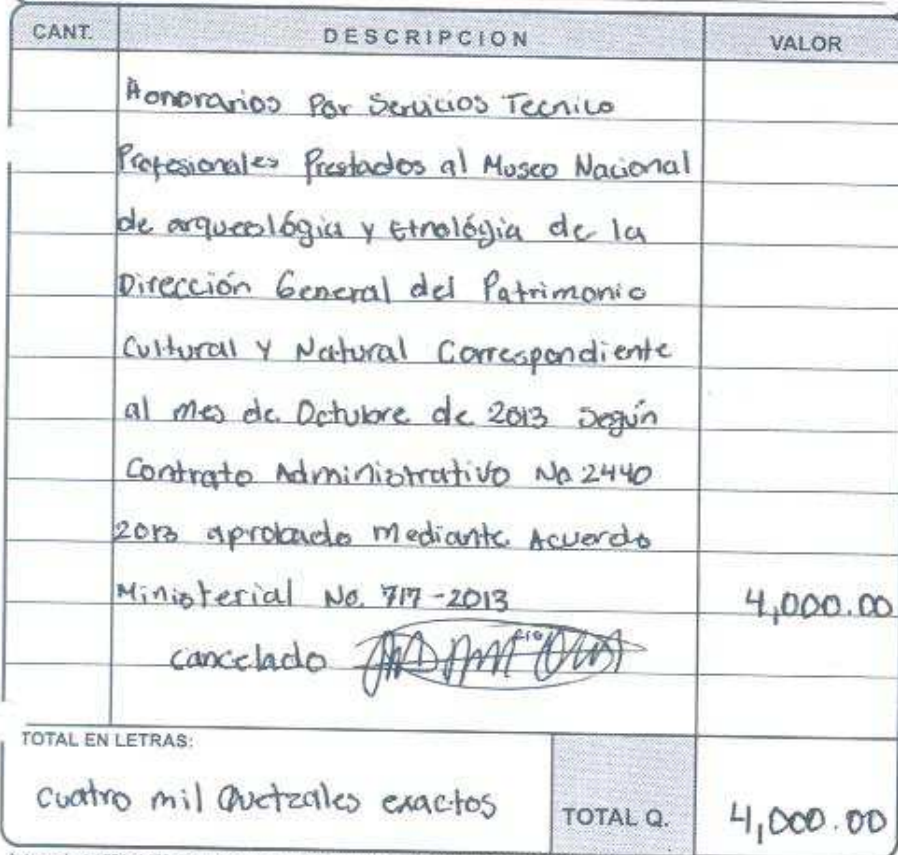 CANT. DESCRIPCION VALOR
Honorarios Por Servicios Tecnico
Profesionales Prestados al Museo Nacional
de arqueológia y Etnológia de la
Dirección General del Patrimonio
Cultural y Natural Correspondiente
al mes de Octubre de 2013 Según
Contrato Administrativo No 2440
2013 aprobado Mediante Acuerdo
Ministerial No. 717-2013 4,000.00
cancelado
TOTAL EN LETRAS:
cuatro mil Quetzales exactos TOTAL Q. 4,000.00